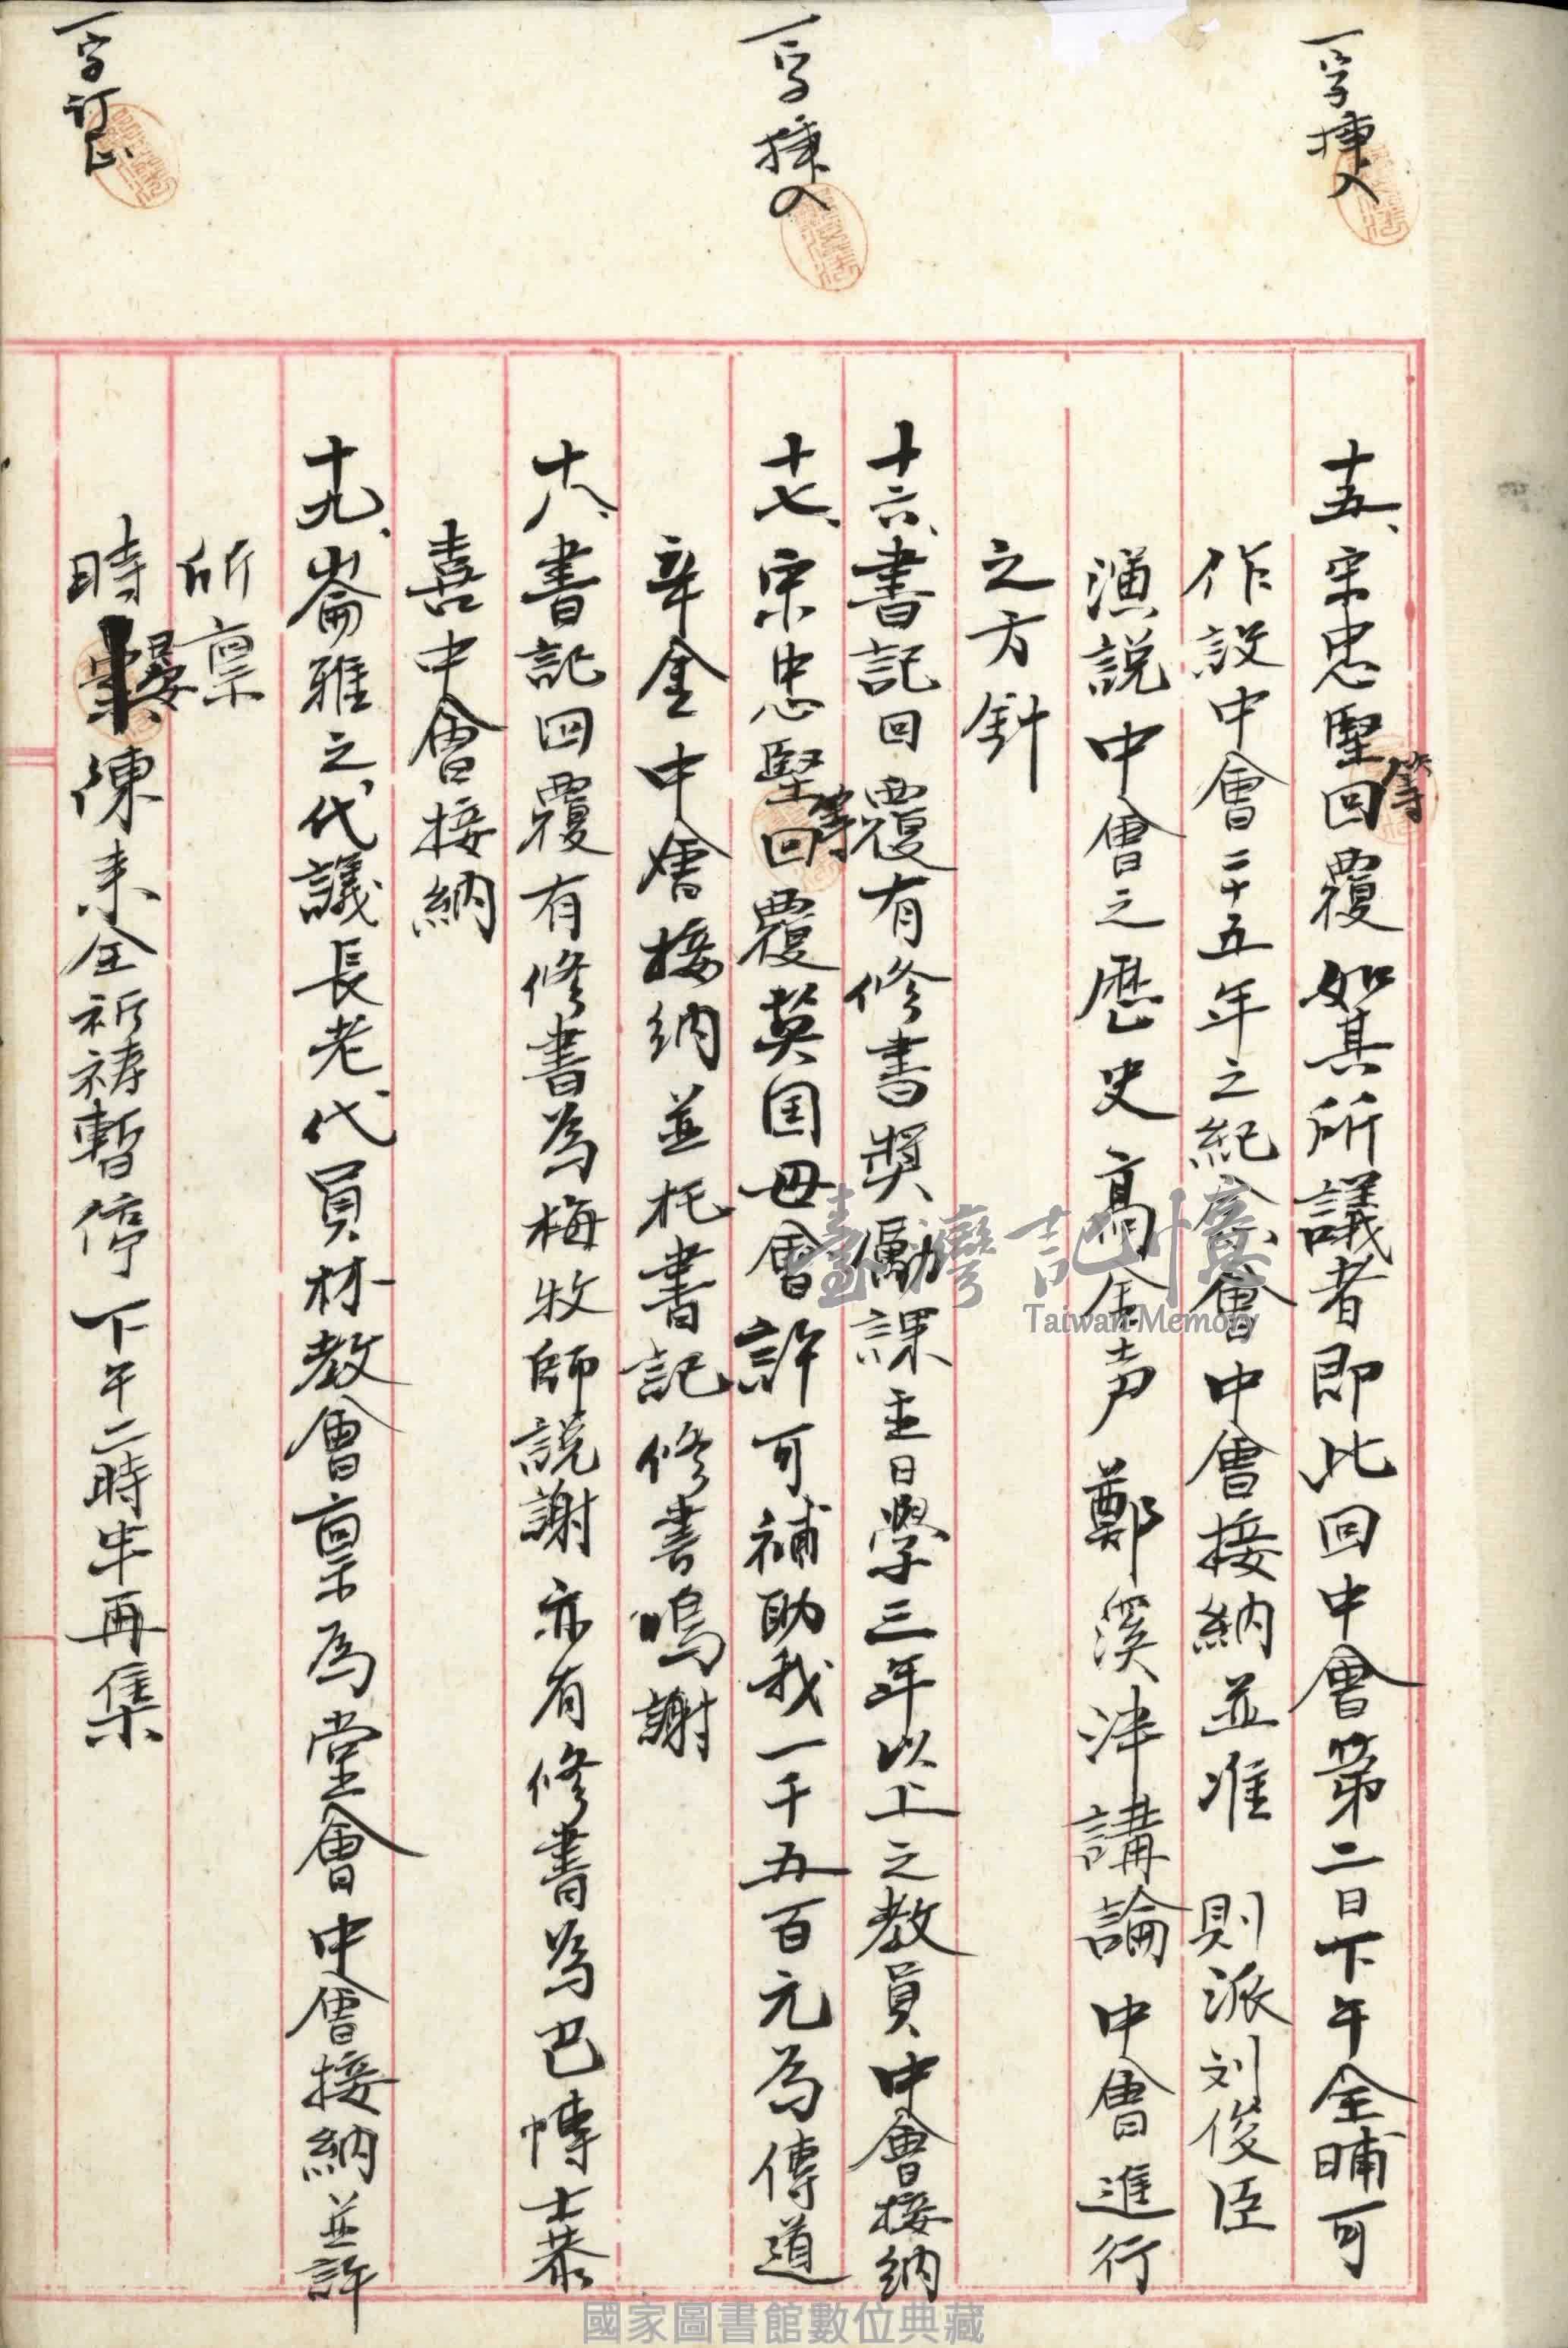 一字揷入
一字揷入
一字訂正
十五、宋忠堅等回覆如其所議者即此回中會第二日下午仝晡可
作設中會二十五年之紀念會中會接納並准 則派刘俊臣
演説中會之歷史高金声 鄭溪泮講論中會進行
之方針
十六、書記回覆有修書奬勵課主日學三年以上之教員中會接納
十七、宋忠堅等回覆英国母會許可補助我一千五百元為傳道
辛金中會接納並托書記修書鳴謝
十八、書記回覆有修書為梅牧師説謝亦有修書為巴博士恭
喜中會接納
十九、崙雅之代議長老代員林教會稟為堂會中會接納並許
所稟
時晏陳来仝祈祷暫停下午二時半再集
臺灣記憶
Taiwan Memory
國家圖書館數位典藏